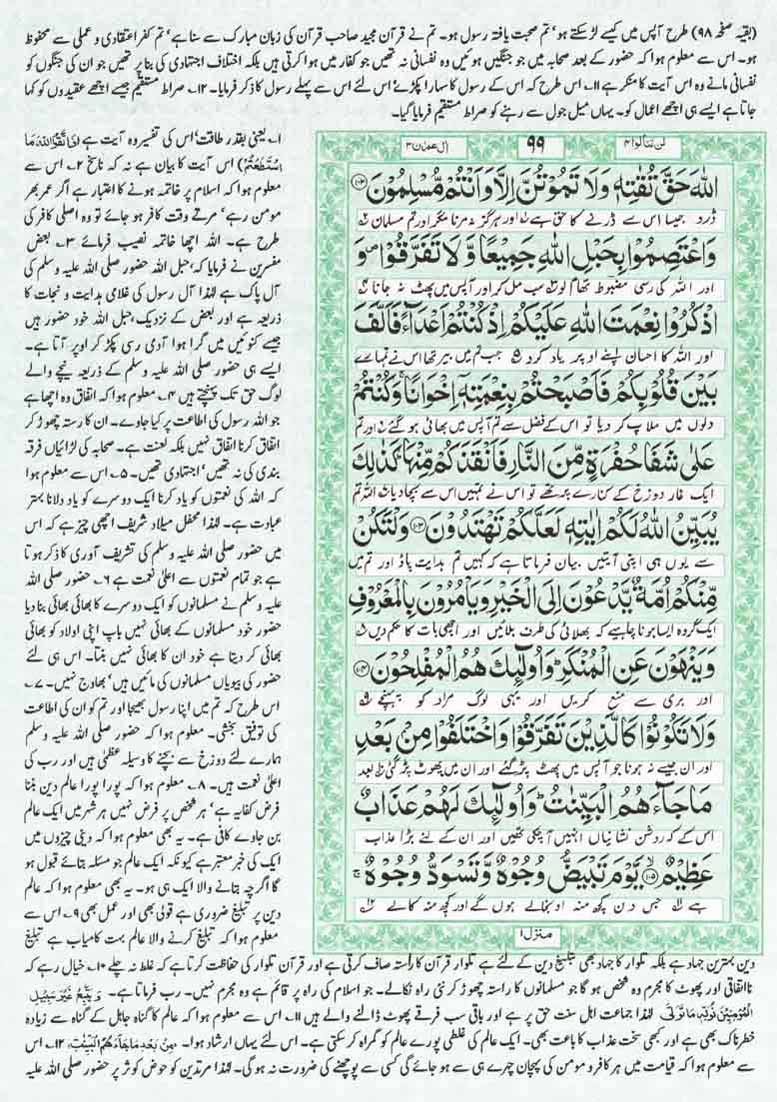 (بقیہ صفحہ ۹۸) طرح آپس میں کیسے لڑ سکتے ہو' تم صحبت یافتہ رسول ہو۔ تم نے قرآن مجید صاحب قرآن کی زبان مبارک سے سنا ہے' تم کفر اعتقادی و عملی سے محفوظ
ہو۔ اس سے معلوم ہوا کہ حضور کے بعد صحابہ میں جو جنگیں ہوئیں وہ نفسانی نہ تھیں جو کفار میں ہوا کرتی ہیں بلکہ اختلاف اجتہادی کی بنا پر تھیں جو ان کی جنگوں کو
نفسانی مانے وہ اس آیت کا منکر ہے ۱۱۔ اس طرح کہ اس کے رسول کا سہارا پکڑے اس لئے اس سے پہلے رسول کا ذکر فرمایا۔ ۱۲۔ صراط مستقیم جیسے اچھے عقیدوں کو کہا
جاتا ہے ایسے ہی اچھے اعمال کو۔ یہاں میل جول سے رہنے کو صراط مستقیم فرمایا گیا۔
لن تنالوا ۴
۹۹
اٰل عمرٰن ۳
اللهَ حَقَّ تُقٰتِهٖ وَلَا تَمُوْتُنَّ اِلَّا وَاَنْتُمْ مُّسْلِمُوْنَ ۝۱۰۲
ڈرو جیسا اس سے ڈرنے کا حق ہے اور ہرگز نہ مرنا مگر تم مسلمان
وَاعْتَصِمُوْا بِحَبْلِ اللهِ جَمِيْعًا وَّلَا تَفَرَّقُوْا ۪ وَ
اور اللہ کی رسی مضبوط تھام لو سب مل کر اور آپس میں پھٹ نہ جانا
اذْكُرُوْا نِعْمَتَ اللهِ عَلَيْكُمْ اِذْ كُنْتُمْ اَعْدَآءً فَاَلَّفَ
اور اللہ کا احسان اپنے اوپر یاد کرو جب تم میں بیر تھا اس نے تمہارے
بَيْنَ قُلُوْبِكُمْ فَاَصْبَحْتُمْ بِنِعْمَتِهٖٓ اِخْوَانًا ۚ وَكُنْتُمْ
دلوں میں ملاپ کر دیا تو اس کے فضل سے تم آپس میں بھائی ہو گئے اور تم
عَلٰى شَفَا حُفْرَةٍ مِّنَ النَّارِ فَاَنْقَذَكُمْ مِّنْهَا ؕ كَذٰلِكَ
ایک غار دوزخ کے کنارے پر تھے تو اس نے تمہیں اس سے بچا دیا اللہ تم
يُبَيِّنُ اللهُ لَكُمْ اٰيٰتِهٖ لَعَلَّكُمْ تَهْتَدُوْنَ ۝۱۰۳ وَلْتَكُنْ
سے یوں ہی اپنی آیتیں بیان فرماتا ہے کہ کہیں تم ہدایت پاؤ اور تم میں
مِّنْكُمْ اُمَّةٌ يَّدْعُوْنَ اِلَى الْخَيْرِ وَيَاْمُرُوْنَ بِالْمَعْرُوْفِ
ایک گروہ ایسا ہونا چاہیے کہ بھلائی کی طرف بلائیں اور اچھی بات کا حکم دیں
وَيَنْهَوْنَ عَنِ الْمُنْكَرِ ؕ وَاُولٰٓئِكَ هُمُ الْمُفْلِحُوْنَ ۝۱۰۴
اور بری سے منع کریں اور یہی لوگ مراد کو پہنچے
وَلَا تَكُوْنُوْا كَالَّذِيْنَ تَفَرَّقُوْا وَاخْتَلَفُوْا مِنْۢ بَعْدِ
اور ان جیسے نہ ہونا جو آپس میں پھٹ پڑ گئے اور ان میں پھوٹ پڑ گئی بعد
مَا جَآءَهُمُ الْبَيِّنٰتُ ؕ وَاُولٰٓئِكَ لَهُمْ عَذَابٌ
اس کے کہ روشن نشانیاں انہیں آ چکی تھیں اور ان کے لئے بڑا عذاب
عَظِيْمٌ ۝۱۰۵ يَّوْمَ تَبْيَضُّ وُجُوْهٌ وَّتَسْوَدُّ وُجُوْهٌ ۚ
ہے جس دن کچھ منہ اونجالے ہوں گے اور کچھ منہ کالے
منزل ۱
۱۔ یعنی بقدر طاقت' اس کی تفسیر وہ آیت ہے (فَاتَّقُوا اللهَ مَا
اسْتَطَعْتُمْ) اس آیت کا بیان ہے نہ کہ ناسخ ۲۔ اس سے
معلوم ہوا کہ اسلام پر خاتمہ ہونے کا اعتبار ہے اگر عمر بھر
مومن رہے' مرتے وقت کافر ہو جائے تو وہ اصلی کافر کی
طرح ہے۔ اللہ اچھا خاتمہ نصیب فرمائے ۳۔ بعض
مفسرین نے فرمایا کہ' حبل اللہ حضور صلی اللہ علیہ وسلم کی
آل پاک ہے لہٰذا آل رسول کی غلامی ہدایت و نجات کا
ذریعہ ہے اور بعض کے نزدیک' حبل اللہ خود حضور ہیں
جیسے کنوئیں میں گرا ہوا آدمی رسی پکڑ کر اوپر آتا ہے۔
ایسے ہی حضور صلی اللہ علیہ وسلم کے ذریعہ نیچے والے
لوگ حق تک پہنچتے ہیں ۴۔ معلوم ہوا کہ اتفاق وہ اچھا ہے
جو اللہ رسول کی اطاعت پر کیا جاوے۔ ان کا رستہ چھوڑ کر
اتفاق کرنا اتفاق نہیں بلکہ لعنت ہے۔ صحابہ کی لڑائیاں فرقہ
بندی کی نہ تھیں' اجتہادی تھیں۔ ۵۔ اس سے معلوم ہوا
کہ اللہ کی نعمتوں کو یاد کرنا ایک دوسرے کو یاد دلانا بہتر
عبادت ہے۔ لہٰذا محفل میلاد شریف اچھی چیز ہے کہ اس
میں حضور صلی اللہ علیہ وسلم کی تشریف آوری کا ذکر ہوتا
ہے جو تمام نعمتوں سے اعلیٰ نعمت ہے ۶۔ حضور صلی اللہ
علیہ وسلم نے مسلمانوں کو ایک دوسرے کا بھائی بھائی بنا دیا
حضور خود مسلمانوں کے بھائی نہیں باپ اپنی اولاد کو بھائی
بھائی کر دیتا ہے خود ان کا بھائی نہیں بنتا۔ اس ہی لئے
حضور کی بیویاں مسلمانوں کی مائیں ہیں' بھاوج نہیں۔ ۷۔
اس طرح کہ تم میں اپنا رسول بھیجا اور تم کو ان کی اطاعت
کی توفیق بخشی۔ معلوم ہوا کہ حضور صلی اللہ علیہ وسلم
ہمارے لئے دوزخ سے بچنے کا وسیلہ عظمٰی ہیں اور رب کی
اعلیٰ نعمت ہیں۔ ۸۔ معلوم ہوا کہ پورا پورا عالم دین بننا
فرض کفایہ ہے' ہر شخص پر فرض نہیں ہر شہر میں ایک عالم
بن جاوے کافی ہے۔ یہ بھی معلوم ہوا کہ دینی چیزوں میں
ایک کی خبر معتبر ہے کیونکہ ایک عالم جو مسئلہ بتائے قبول ہو
گا اگرچہ بتانے والا ایک ہی ہو۔ یہ بھی معلوم ہوا کہ عالم
دین پر تبلیغ ضروری ہے قولی بھی اور عمل بھی ۹۔ اس سے
معلوم ہوا کہ تبلیغ کرنے والا عالم بہت کامیاب ہے تبلیغ
دین بہترین جہاد ہے بلکہ تلوار کا جہاد بھی تبلیغ دین کے لئے ہے تلوار قرآن کا راستہ صاف کرتی ہے اور قرآن تلوار کی حفاظت کرتا ہے کہ غلط نہ چلے ۱۰۔ خیال رہے کہ
نااتفاقی اور پھوٹ کا مجرم وہ شخص ہو گا جو مسلمانوں کا راستہ چھوڑ کر نئی راہ نکالے۔ جو اسلام کی راہ پر قائم ہے وہ مجرم نہیں۔ رب فرماتا ہے۔ وَيَتَّبِعْ غَيْرَ سَبِيْلِ
الْمُؤْمِنِيْنَ نُوَلِّهٖ مَا تَوَلّٰى لہٰذا جماعت اہل سنت حق پر ہے اور باقی سب فرقے پھوٹ ڈالنے والے ہیں ۱۱۔ اس سے معلوم ہوا کہ عالم کا گناہ جاہل کے گناہ سے زیادہ
خطرناک بھی ہے اور کبھی سخت عذاب کا باعث بھی۔ ایک عالم کی غلطی پورے عالم کو گمراہ کر سکتی ہے۔ اس لئے یہاں ارشاد ہوا۔ مِنْۢ بَعْدِ مَا جَآءَهُمُ الْبَيِّنٰتُ ۱۲۔ اس
سے معلوم ہوا کہ قیامت میں ہر کافر و مومن کی پہچان چہرے ہی سے ہو جائے گی کسی سے پوچھنے کی ضرورت نہ ہو گی۔ لہٰذا مرتدین کو حوض کوثر پر حضور صلی اللہ علیہ